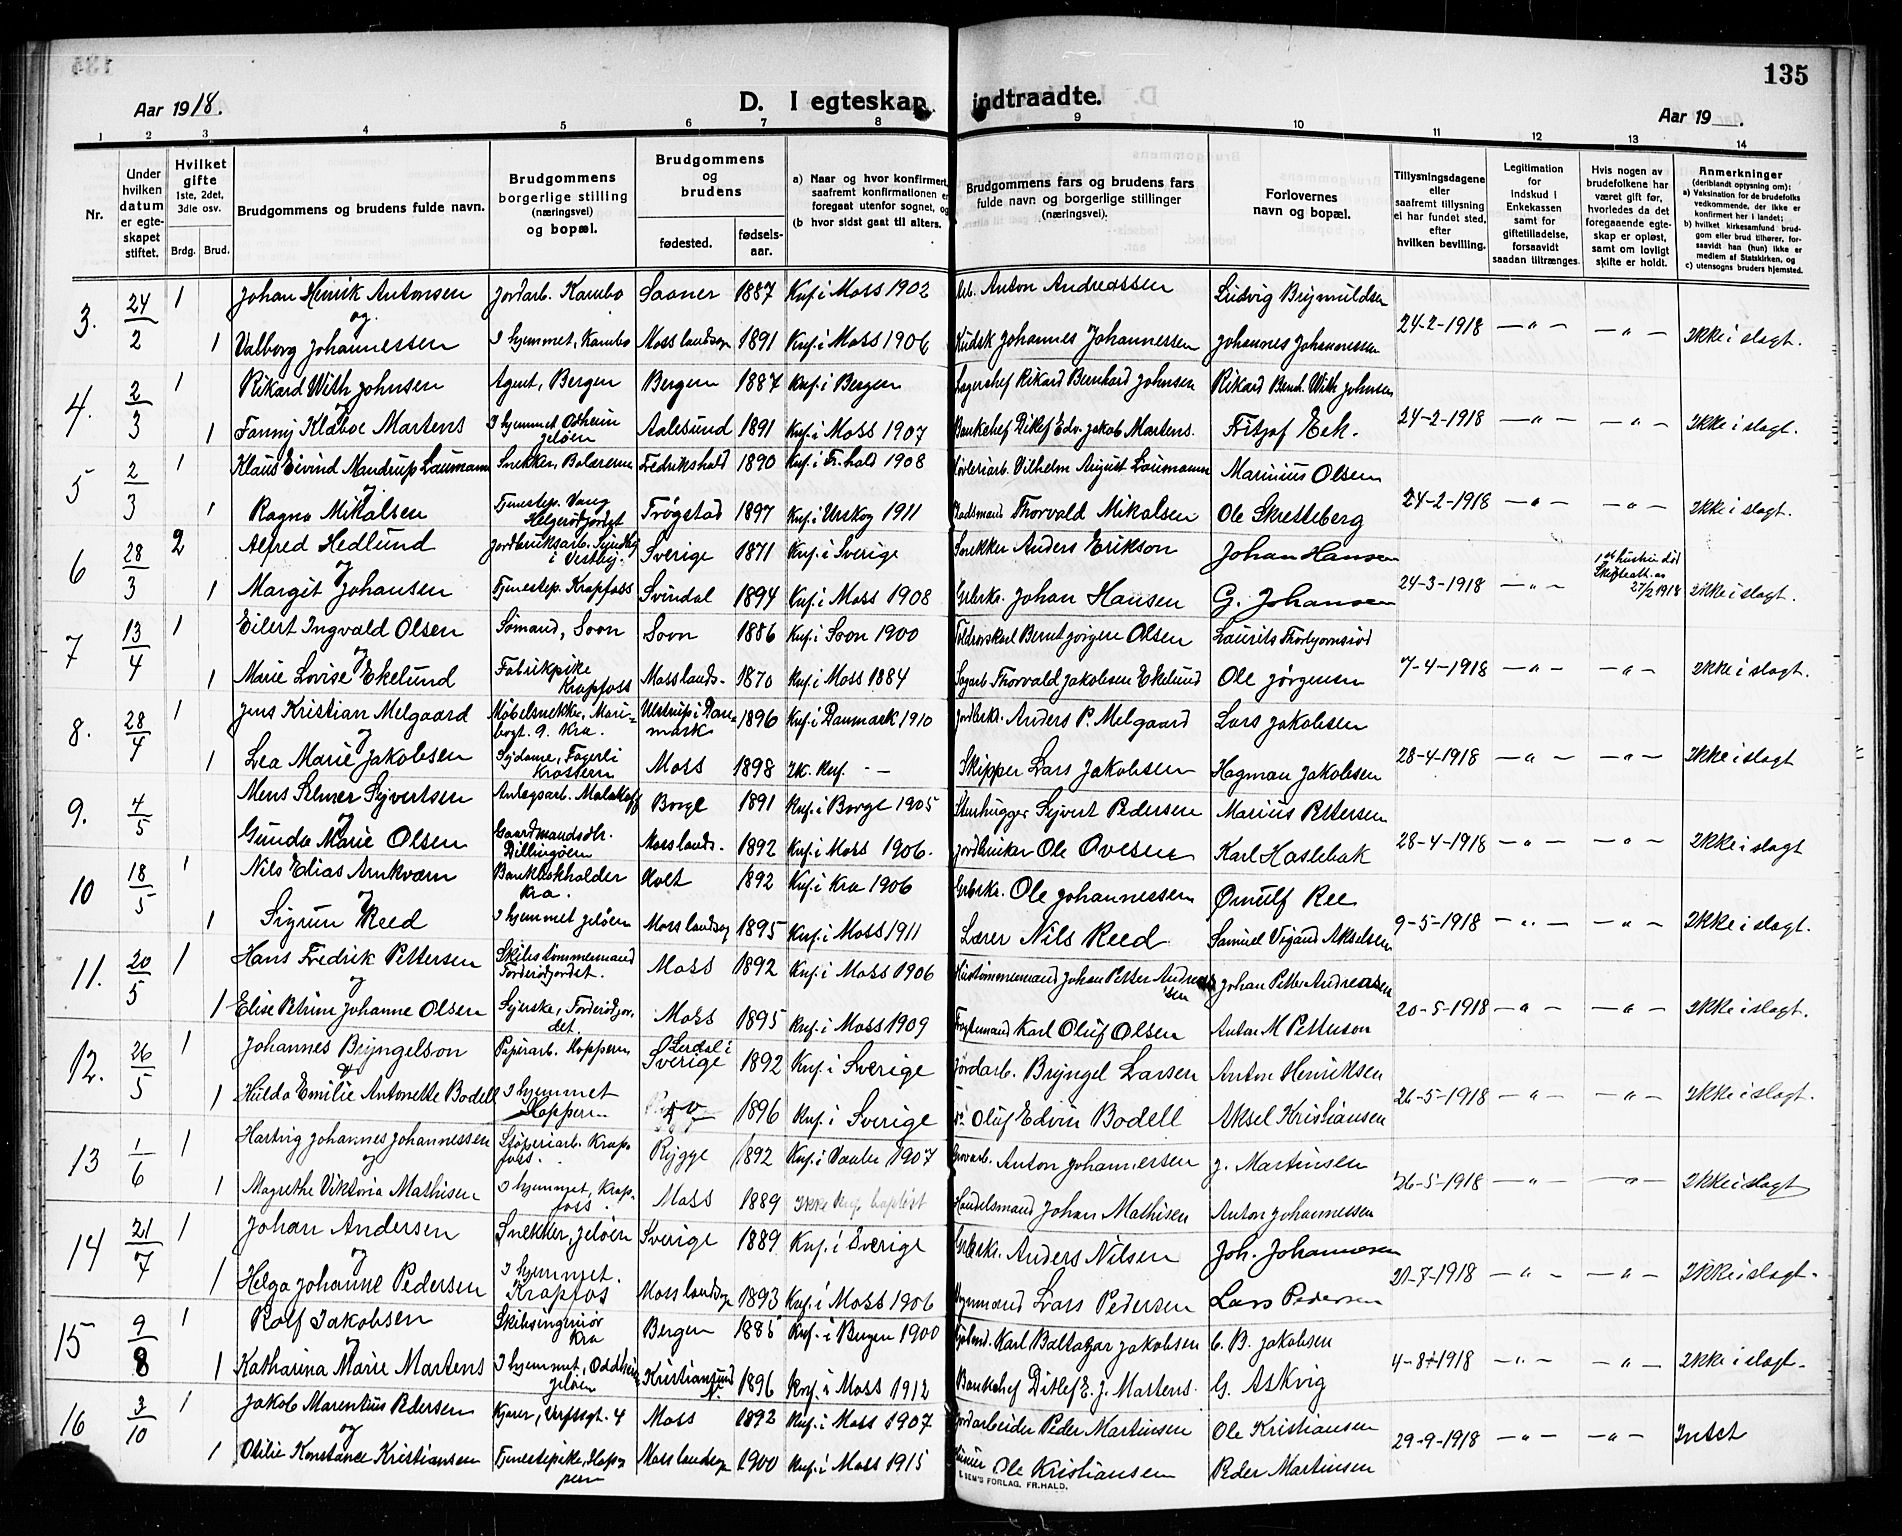 135
Aar 1918.
D. I egteskap indtraadte.
Aar 19 .
1 2 3 4 5 6 7 8 9 10 11 12 13 14
Nr.
Under hvilken datum er egteskapet stiftet.
Hvilket gifte 1ste, 2det, 3die osv.
Brdg. Brud.
Brudgommens og brudens fulde navn.
Brudgommens borgerlige stilling (næringsvei) og bopæl.
Brudgommens og brudens
fødested.
fødselsaar.
a) Naar og hvor konfirmert, saafremt konfirmationen er foregaat utenfor sognet, og
(b hvor sidst gaat til alters.
Brudgommens fars og brudens fars fulde navn og borgerlige stillinger (næringsvei).
Forlovernes navn og bopæl.
Tillysningsdagene eller saafremt tillysning ei har fundet sted, efter hvilken bevilling.
Legitimation for Indskud i Enkekassen samt for giftetilladelse, forsaavidt saadan tiltrænges.
Hvis nogen av brudefolkene har været gift før, hvorledes da det foregaaende egteskap er opløst, samt om lovligt skifte er holdt.
Anmerkninger (deriblandt oplysning om): a) Vaksination for de brudefolks vedkommende, der ikke er konfirmert her i landet; b) hvilket kirkesamfund brudgom eller brud tilhører, forsaavidt han (hun) ikke er medlem af Statskirken, og c) utensogns bruders hjemsted.
3. 24/2 1 Johan Henrik Antonsen Jordarb. Kambo Saaner 1887 Knf. i Moss 1902 Arb. Anton Andreassen Ludvig Brynuldsen
og
1 Valborg Johannessen I hjemmet, Kambo Moss landsogn 1891 Knf. i Moss 1906 Kudsk Johannes Johannessen Johannes Johannessen 24-2-1918 — " — — " — Ikke i slegt.
4. 2/3 1 Rikard With Johnsen Agent, Bergen Bergen 1887 Knf. i Bergen Lagerchef Rikard Bernhard Johnsen Rikard Bernh. With Johnsen
og
1 Fanny Klaboe Martens I hjemmet Odheim Jeløen Aalesund 1891 Knf. i Moss 1907 Bankchef Ditlef Edv. Jakob Martens. Fritjof Eek. 24-2-1918 — " — — " — Ikke i slegt.
5 2/3 1 Klaus Eivind Mandrup Laumann Snekker, Bolærerne Fredrikshald 1890 Knf. i Fr.hald 1908 Vilhelm August Laumann Marinius Olsen
og
1 Ragna Mikalsen Tjenestep. Vang Helgerødjordet Trøgstad 1897 Knf. i Urskog 1911 Thorvald Mikalsen Ole Skretteberg 24-2-1918 — " — — " — Ikke i slegt.
6 28/3 2 Alfred Hedlund Jordbruksarb. i Vestby. Sverige 1871 Knf. i Sverige Snekker Anders Erikson Johan Hansen
og
1 Margit Johansen Tjenestep. Krapfoss Svindal 1894 Knf. i Moss 1908 Grbrkr. Johan Hansen G. Johansen 24-3-1918 — " — 1st hustru død Skifteatt. av 27/2 1918 Ikke i slegt.
7 13/4 1 Eilert Ingvald Olsen Sømand, Soon Soon 1886 Knf. i Soon 1900 Bernt Jørgen Olsen Laurits Thorbjørnsrød
og
1 Marie Lovise Ekelund Fabrikpike Krapfoss Moss lands. 1870 Knf. i Moss 1884 Sagarb. Thorvald Jakobsen Ekelund Ole Jørgensen 7-4-1918 — " — — " — Ikke i slegt.
8. 28/4 1 Jens Kristian Melgaard Møbelsnekker, Maribogt. 9. Kra. Ulstrup i Danmark 1896 Knf. i Danmark 1910 Jordbrkr. Anders P. Melgaard Lars Jakobsen
og
1 Lea Marie Jakobsen Sydame, Fagerli Krossern Moss 1898 Ik. Knf. — Skipper Lars Jakobsen Hagman Jakobsen 28-4-1918 — " — — " — Ikke i slegt
9. 4/5 Mens Selmer Syvertsen Anlægsarb. Malakoff Borge 1891 Knf. i Borge 1905 Stenhugger Syvert Pedersen Marius Pettersen
og
Gunda Marie Olsen Gaardmandsdtr. Dillingøen Moss lands. 1892 Knf. i Moss 1906. Jordbruker Ole Ovesen Karl Haslebak 28-4-1918 — " — — " — Ikke i slegt
10 18/5 1 Nils Elias Arnkværn Bankbokholder Kra. Holt 1892 Knf. i Kra 1906 Grbrkr. Ole Johannessen Ørnulf Ree
og
1 Sigrun Reed I hjemmet Jeløen Moss landsog 1895 Knf. i Moss 1911 Lærer Nils Reed Samuel Vigand Akselsen 9-5-1918 — " — — " — Ikke i slegt.
11. 20/5 1 Hans Fredrik Pettersen Skibstømmermand Torderødjordet. Moss 1892 Knf. i Moss 1906 Hustømmermand Johan Petter Andreassen Johan Petter Andreasen
og
1 Elise Petrine Johanne Olsen Syerske, Torderødjordet. Moss 1895 Knf. i Moss 1909 Fragtemand Karl Oluf Olsen Anton M Petterson 20-5-1918 — " — — " — Ikke i slegt.
12. 26/5 1 Johannes Bryngelson Papirarb. Noppern Ø Lerdal i Sverige 1892 Knf. i Sverige Jordarb. Bryngel Larsen Anton Henriksen
og
1 Hulda Emilie Antonette Bodell I hjemmet Noppern 1896 Knf. i Sverige Oluf Edvin Bodell Aksel Kristiansen 26-5-1918 — " — — " — Ikke i slegt.
13 1/6 1 Hartvig Johannes Johannessen Støperiarb. Krapfoss. Rygge 1892 Knf. i Vaaler 1907 Grovarb. Anton Johannessen J. Martinsen
og
1 Magrethe Viktoria Mathisen I hjemmet, Krapfoss. Moss 1889 Ikke Knf. baptist Handelsmand Johan Mathisen Anton Johannessen 26-5-1918 — " — — " — Ikke i slegt
14 21/7 1 Johan Andersen Snekker, Jeløen Sverige 1889 Knf. i Sverige Grbrkr. Anders Nilsen Joh. Johannesen
og
1 Helga Johanne Pedersen I hjemmet. Krapfos Moss landsog 1893 Knf. i Moss 1906 Lars Pedersen Lars Pedersen 21-7-1918 — " — — " — Ikke i slegt.
15 9/8 1 Rolf Jakobsen Skibsingeniør Kra Bergen 1885 Knf. i Bergen 1900 Karl Baltazar Jakobsen C. B. Jakobsen
og
1 Katharina Marie Martens I hjemmet, Oddheim Jeløen Kristiansund N. 1896 Knf. i Moss 1912 Bankchef Ditlef E. J. Martens. G. Askvig 4-8-1918 — " — — " — Ikke i slegt.
16 3/10 1 Jakob Marentius Pedersen Kjører, Verftsgt. 4 Moss 1892 Knf. i Moss 1907 Jordarbeider Peder Martinsen Ole Kristiansen
og
1 Otilie Konstance Kristiansen Tjenestepike, Noppern Moss landsogn 1900 Knf. i Moss 1915 Ole Kristiansen Peder Martinsen 29-9-1918 — " — — " — Intet
E. SEM'S FORLAG, FR.HALD.